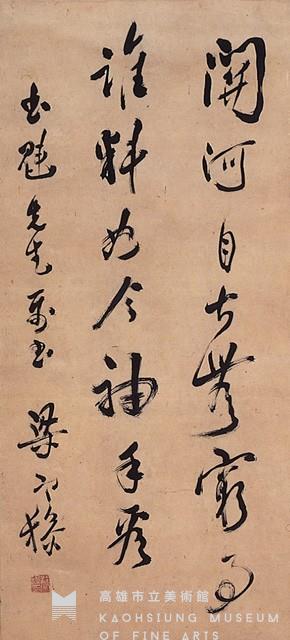 關河自古無窮事
誰料如今袖手看
玉魁先生属書
梁啟超
高雄市立美術館
KAOHSIUNG MUSEUM
OF FINE ARTS